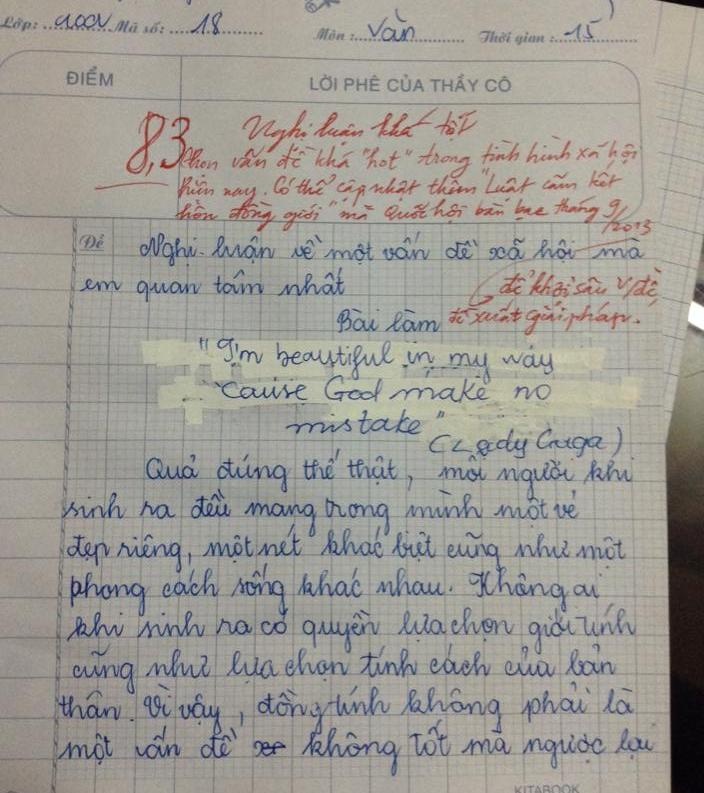 Lớp: 10CV Mã số: 18 Môn: Văn Thời gian: 15'
ĐIỂM LỜI PHÊ CỦA THẦY CÔ
8,3 Nghị luận khá tốt
Chọn vấn đề khá "hot" trong tình hình xã hội
hiện nay. Có thể cập nhật thêm "Luật cấm kết
hôn đồng giới" mà Quốc hội bàn bạc tháng 9/2013
Đề Nghị luận về một vấn đề xã hội mà
em quan tâm nhất để khơi sâu v/đề,
Bài làm đề xuất giải pháp.
"I'm beautiful in my way
'cause God make no
mistake"
(Lady Gaga)
Quả đúng thế thật, mỗi người khi
sinh ra đều mang trong mình một vẻ
đẹp riêng, một nét khác biệt cũng như một
phong cách sống khác nhau. Không ai
khi sinh ra có quyền lựa chọn giới tính
cũng như lựa chọn tính cách của bản
thân. Vì vậy, đồng tính không phải là
một vấn đề không tốt mà ngược lại
KITABOOK